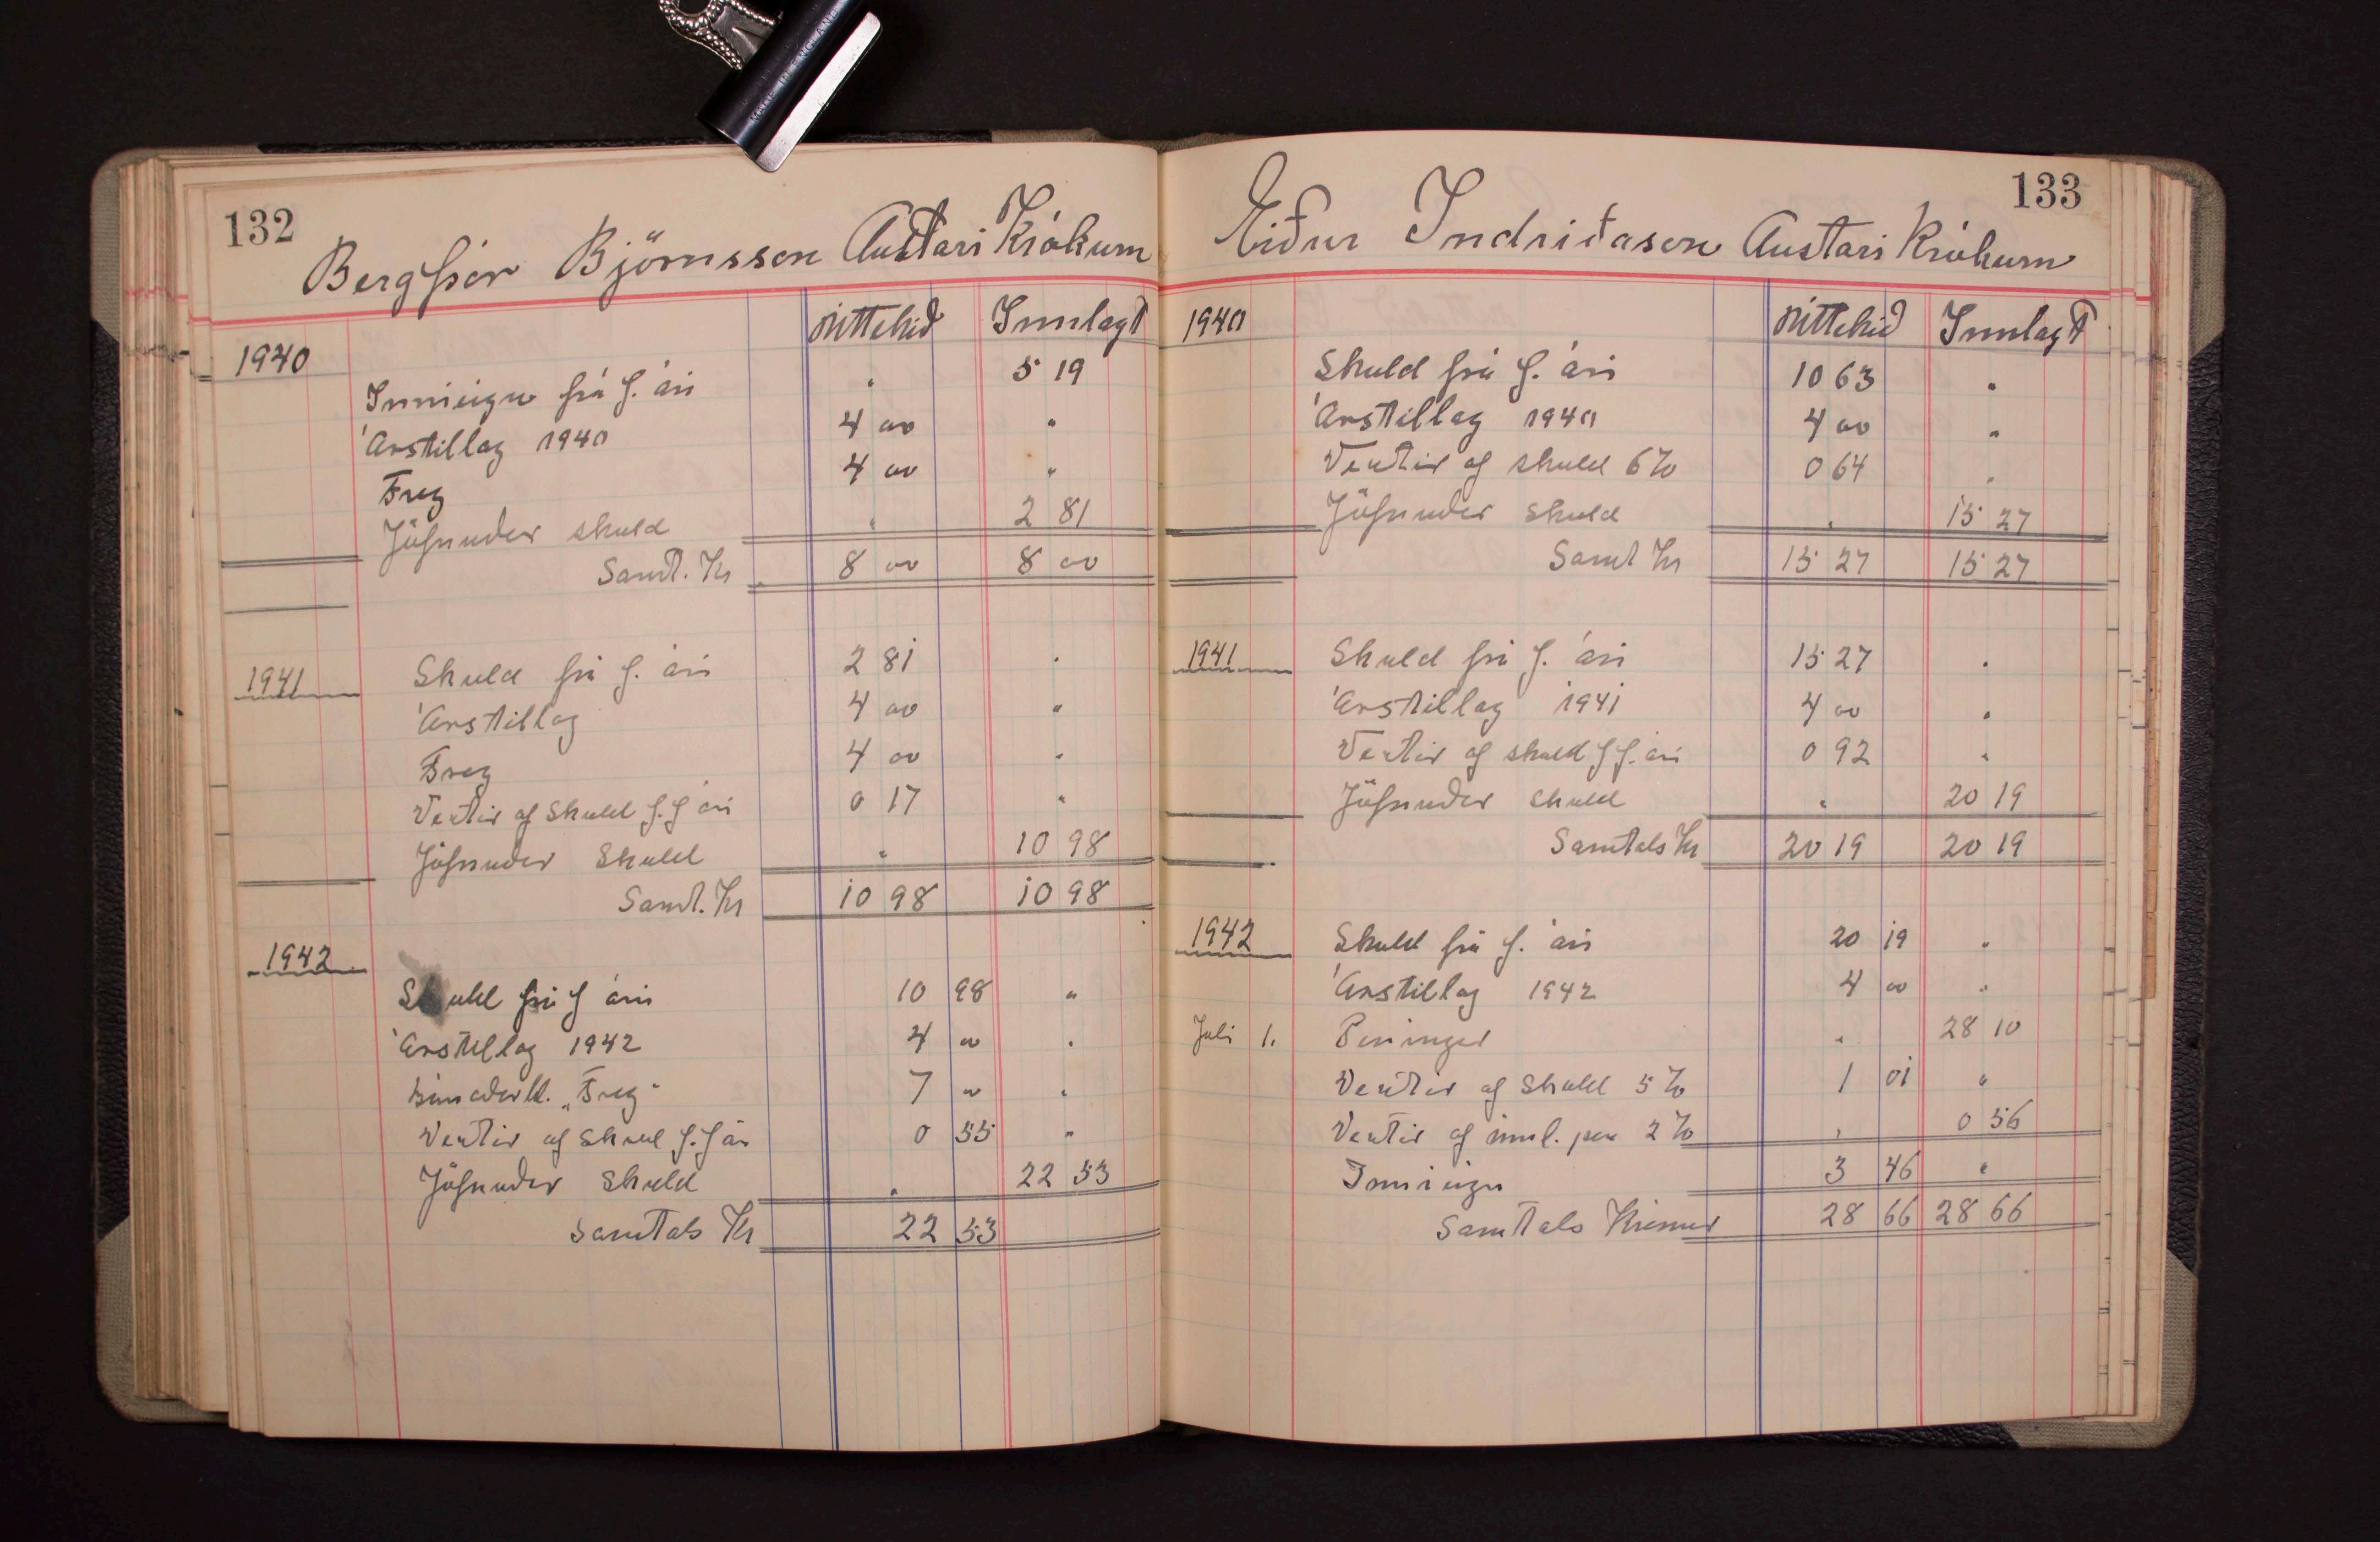 MADE IN ENGLAND
132
Bergþór Björnsson Austari Krókum
Úttekið Innlagt
1940
Inneign frá f. ári " 5 19
Árstillag 1940 4 00 "
Freg 4 00 "
Jöfnuður skuld " 2 81
Samt. Kr 8 00 8 00
1941 Skuld frá f. ári 2 81 "
Árstillag 4 00 "
Freg 4 00 "
Vextir af skuld f. f ári 0 17 "
Jöfnuður Skuld " 10 98
Samt. Kr 10 98 10 98
1942
Skuld frá f ári 10 98 "
Árstillag 1942 4 00 "
Búnaðarbl. „Freg" 7 00 "
Vextir af skuld f. f ár 0 55 "
Jöfnuður Skuld " 22 53
Samtals Kr 22 53
133
Eiður Indriðason Austari Krókum
1940 Úttekið Innlagt
Skuld frá f. ári 10 63 "
Árstillag 1940 4 00 "
Vextir af skuld 6% 0 64 "
Jöfnuður Skuld " 15 27
Samt Kr 15 27 15 27
1941 Skuld frá f. ári 15 27 "
Árstillag 1941 4 00 "
Vextir af skuld f f. ári 0 92 "
Jöfnuður skuld " 20 19
Samtals Kr 20 19 20 19
1942 Skuld frá f. ári 20 19 "
Árstillag 1942 4 00 "
Juli 1. Peningar " 28 10
Vextir af Skuld 5% 1 01 "
Vextir af innl. pen 2% " 0 56
Inneign 3 46 "
Samtals Krónur 28 66 28 66